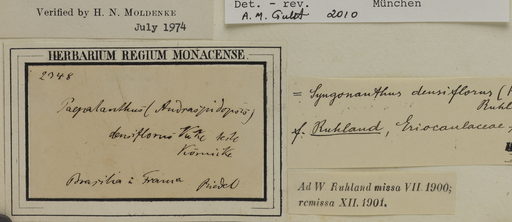 Verified by H. N. MOLDENKE
July 1974
Det. - rev. München
2010
HERBARIUM REGIUM MONACENSE.
2348
Paepalanthus (Andraspidopsis)
densiflorus Kcke
Körnicke
Brasilia: Riedel
= Syngonanthus densiflorus (
Ruhl
f. Ruhland, Eriocaulaceae,
Ad W Ruhland missa VII. 1900;
remissa XII. 1901.